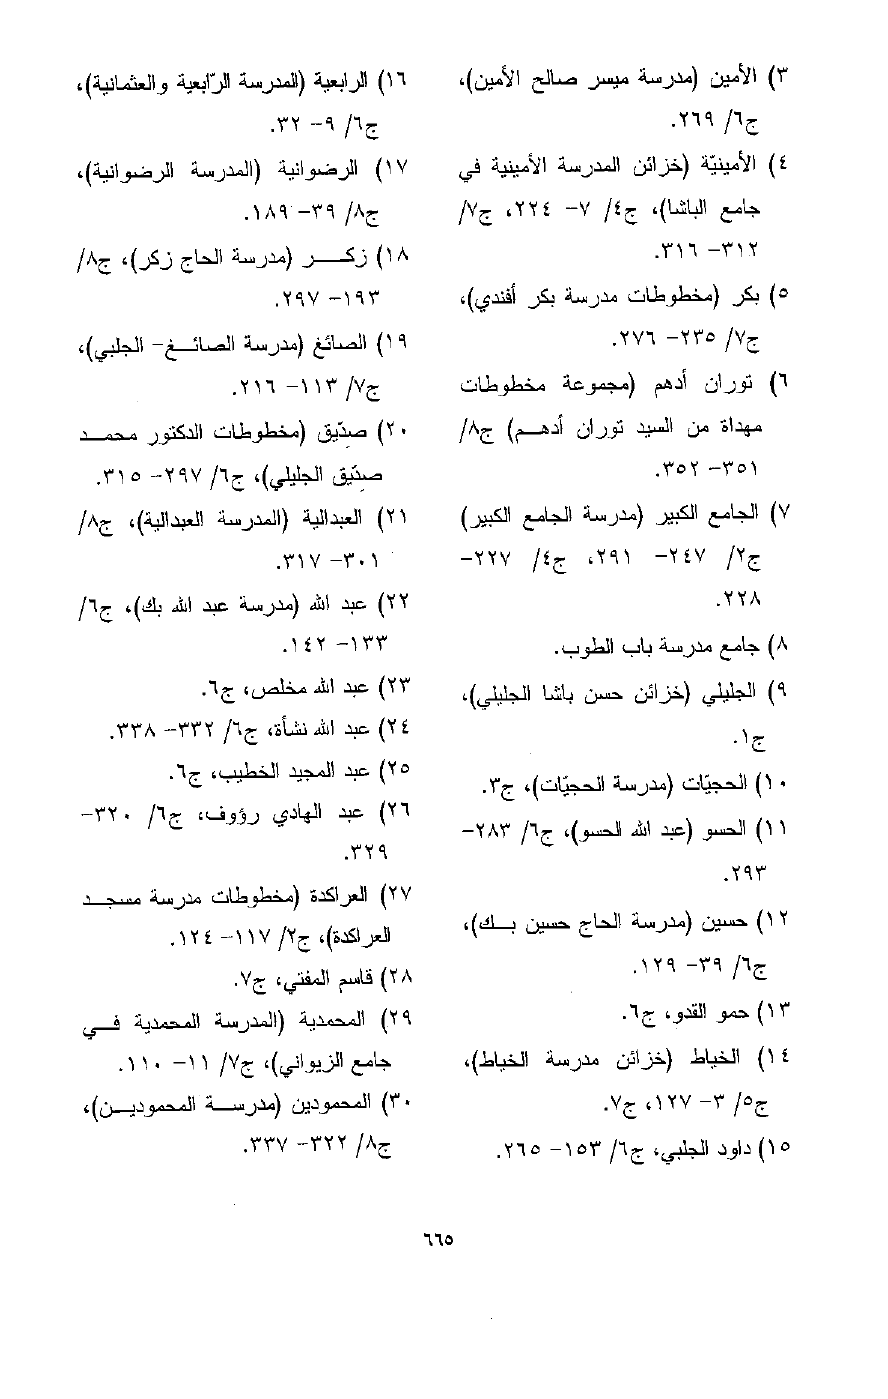 ٣) الأمين (مدرسة ميسر صالح الأمين)،
ج٦/ ٢٦٩.
٤) الأمينيّة (خزائن المدرسة الأمينية في
جامع الباشا)، ج٤/ ٧- ٢٢٤، ج٧/
٣١٢- ٣١٦.
٥) بكر (مخطوطات مدرسة بكر أفندي)،
ج٧/ ٢٣٥- ٢٧٦.
٦) توران أدهم (مجموعة مخطوطات
مهداة من السيد توران أدهـم) ج٨/
٣٥١- ٣٥٢.
٧) الجامع الكبير (مدرسة الجامع الكبير)
ج٢/ ٢٤٧- ٢٩١، ج٤/ ٢٢٧-
٢٢٨.
٨) جامع مدرسة باب الطوب.
٩) الجليلي (خزائن حسن باشا الجليلي)،
ج١.
١٠) الحجيّات (مدرسة الحجيّات)، ج٣.
١١) الحسو (عبد الله الحسو)، ج٦/ ٢٨٣-
٢٩٣.
١٢) حسين (مدرسة الحاج حسين بـك)،
ج٦/ ٣٩- ١٢٩.
١٣) حمو القدو، ج٦.
١٤) الخياط (خزائن مدرسة الخياط)،
ج٥/ ٣- ١٢٧، ج٧.
١٥) داود الجلبي، ج٦/ ١٥٣- ٢٦٥.
١٦) الرابعية (المدرسة الرّابعية والعثمانية)،
ج٦/ ٩- ٣٢.
١٧) الرضوانية (المدرسة الرضوانية)،
ج٨/ ٣٩- ١٨٩.
١٨) زكـــر (مدرسة الحاج زكر)، ج٨/
١٩٣- ٢٩٧.
١٩) الصائغ (مدرسة الصائـغ- الجلبي)،
ج٧/ ١١٣- ٢١٦.
٢٠) صدّيق (مخطوطات الدكتور محمـد
صدّيق الجليلي)، ج٦/ ٢٩٧- ٣١٥.
٢١) العبدالية (المدرسة العبدالية)، ج٨/
٣٠١- ٣١٧.
٢٢) عبد الله (مدرسة عبد الله بك)، ج٦/
١٣٣- ١٤٢.
٢٣) عبد الله مخلص، ج٦.
٢٤) عبد الله نشأة، ج٦/ ٣٣٢- ٣٣٨.
٢٥) عبد المجيد الخطيب، ج٦.
٢٦) عبد الهادي رؤوف، ج٦/ ٣٢٠-
٣٢٩.
٢٧) العراكدة (مخطوطات مدرسة مسجـد
العراكدة)، ج٢/ ١١٧- ١٢٤.
٢٨) قاسم المفتي، ج٧.
٢٩) المحمدية (المدرسة المحمدية فـي
جامع الزيواني)، ج٧/ ١١- ١١٠.
٣٠) المحمودين (مدرسـة المحموديـن)،
ج٨/ ٣٢٢- ٣٣٧.
٦٦٥